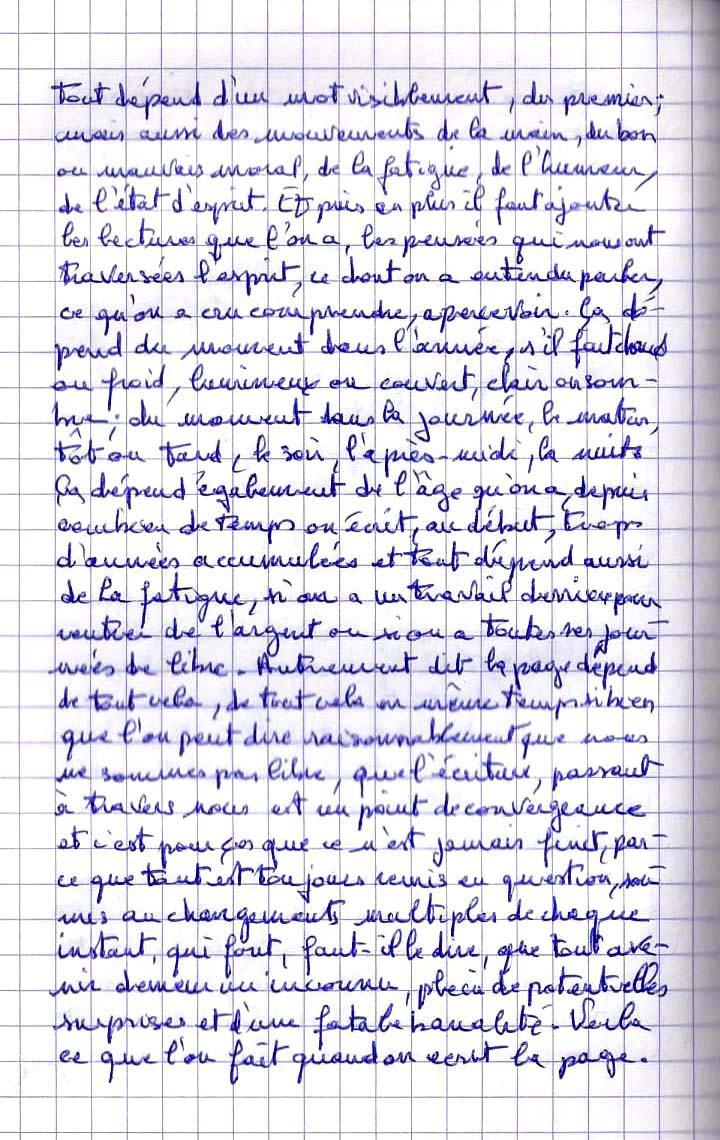 tout dépend d'un mot visiblement, du premier;
mais aussi des mouvements de la main, du bon
ou mauvais moral, de la fatigue, de l'humeur,
de l'état d'esprit. Et puis en plus il faut ajouter
les lectures que l'on a, les pensées qui nous ont
traversées l'esprit, ce dont on a entendu parler,
ce qu'on a cru comprendre, apercevoir. Ça dé-
pend du moment dans l'année, s'il fait chaud
ou froid, lumineux ou couvert, clair ou som-
bre; du moment dans la journée, le matin,
tôt ou tard, le soir, l'après-midi, la nuit.
Ça dépend également de l'âge qu'on a, depuis
combien de temps on écrit, au début, trop
d'années accumulées et tout dépend aussi
de la fatigue, si on a un travail derrière pour
rentrer de l'argent ou si on a toutes ses jour-
nées de libre. Autrement dit la page dépend
de tout cela, de tout cela en même temps si bien
que l'on peut dire raisonnablement que nous
ne sommes pas libre, que l'écriture, passant
à travers nous est un point de convergeance
et c'est pour ça que ce n'est jamais finit, par-
ce que tout est toujours remis en question, sou-
mis au changements multiples de chaque
instant, qui font, faut-il le dire, que tout ave-
nir demeure inconnu, plein de potentielles
surprises et d'une fatale banalité. Voila
ce que l'on fait quand on ecrit la page.